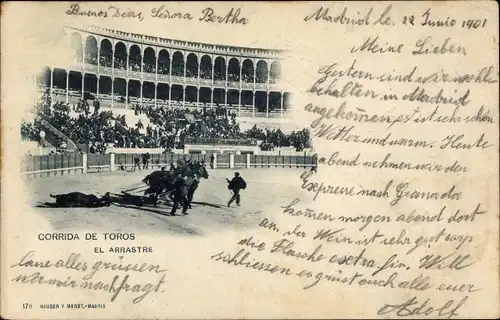 Buenos Dias, Señora Bertha
Madrid le. 22 Junio 1901
Meine Lieben
Gestern sind wir wohl
behalten in Madrid
angekommen, es ist sehr schön
Wetter und warm. Heute
abend nehmen wir den
Expresse nach Granada
kommen morgen abend dort
an. der Wein ist sehr gut
die Flasche extra fein. Will
schliessen es grüsst euch alle euer
Adolf
CORRIDA DE TOROS
EL ARRASTRE
lasse alles grüssen
wer mir nachfragt.
178 HAUSER Y MENET.-MADRID